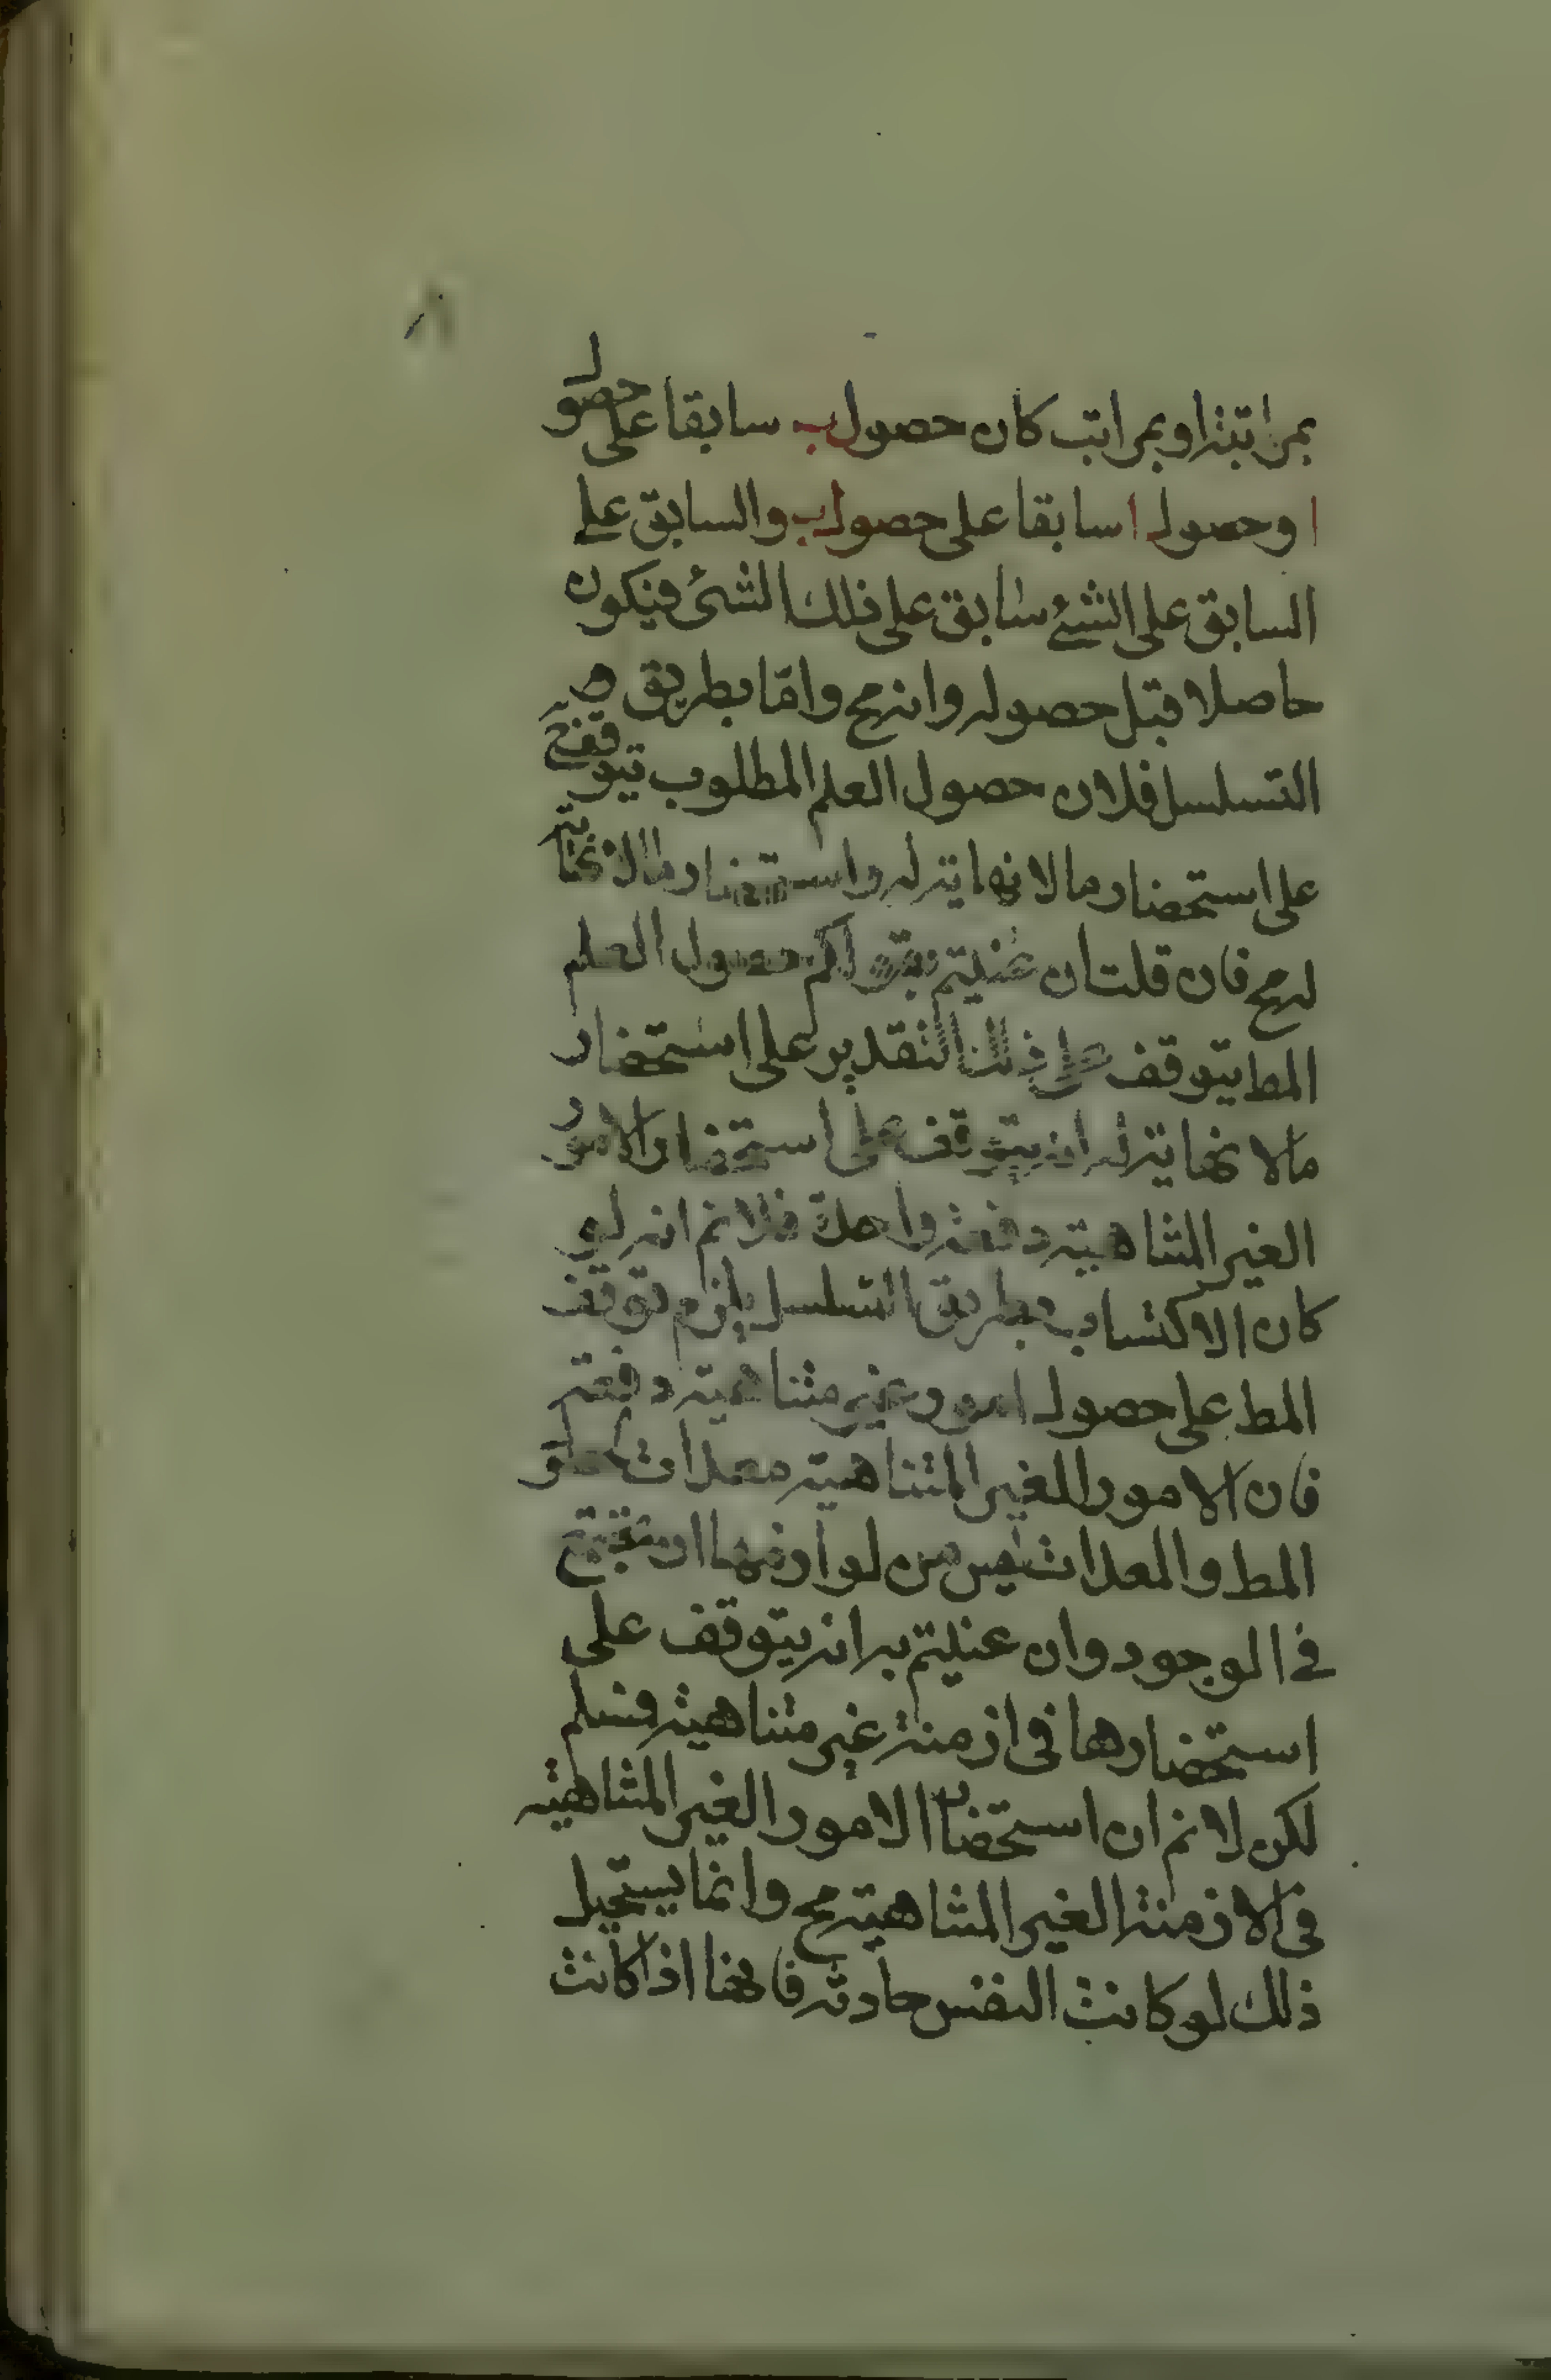 ٨
بمراتبة او بمراتب كان حصول ب سابقا على حصول
ا وحصول ا سابقا على حصول ب والسابق على
السابق على الشئ سابق على ذلك الشئ فيكون
حاصلا قبل حصوله وانه مح واما بطريق
التسلسل فلان حصول العلم المطلوب يتوقف ح
على استحضار ما لا نهاية له واستحضار ما لا نهاية
له مح فان قلت ان عنيتم بقولكم حصول العلم
المط يتوقف على ذلك التقدير على استحضار
ما لا نهاية له انه يتوقف على استحضار الامور
الغير المتناهية دفعة واحدة فلا نم انه لو
كان الاكتساب بطريق التسلسل يلزم توقف
المط على حصول امور غير متناهية دفعة
فان الامور الغير المتناهية معدات لحصول
المط والمعدات ليس من لوازمها ان تجتمع
فى الوجود وان عنيتم به انه يتوقف على
استحضارها فى ازمنة غير متناهية فمسلم
لكن لا نم ان استحضار الامور الغير المتناهية
فى الازمنة الغير المتناهية مح وانما يستحيل
ذلك لو كانت النفس حادثة فانها اذا كانت